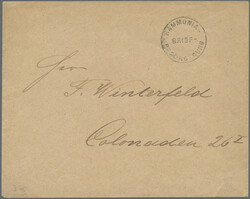 HAMMONIA
Herrn
F. Winterfeld
Colonaden 26 I